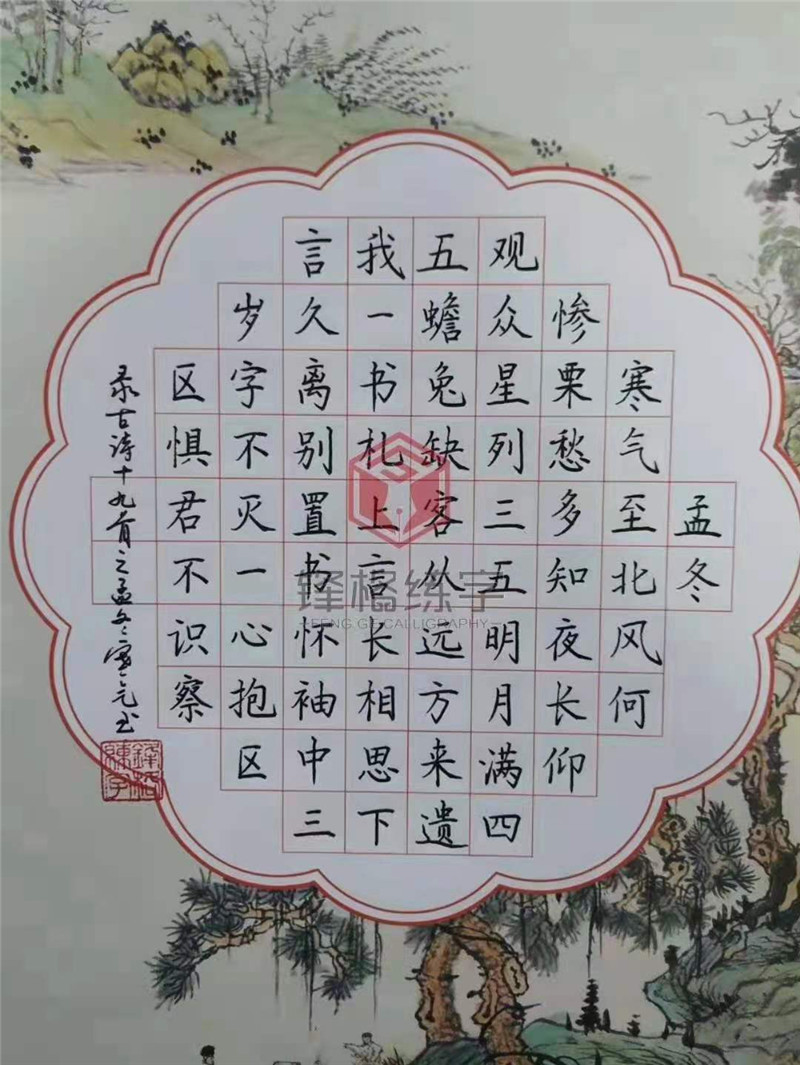 孟冬
寒气至北风何
惨栗愁多知夜长仰
观众星列三五明月满四
五蟾兔缺客从远方来遗
我一书札上言长相思下
言久离别置书怀袖中三
岁字不灭一心抱区
区惧君不识察
录古诗十九首之孟冬寒气书
锋橘练字
FENG.GE.CALLIGRAPHY